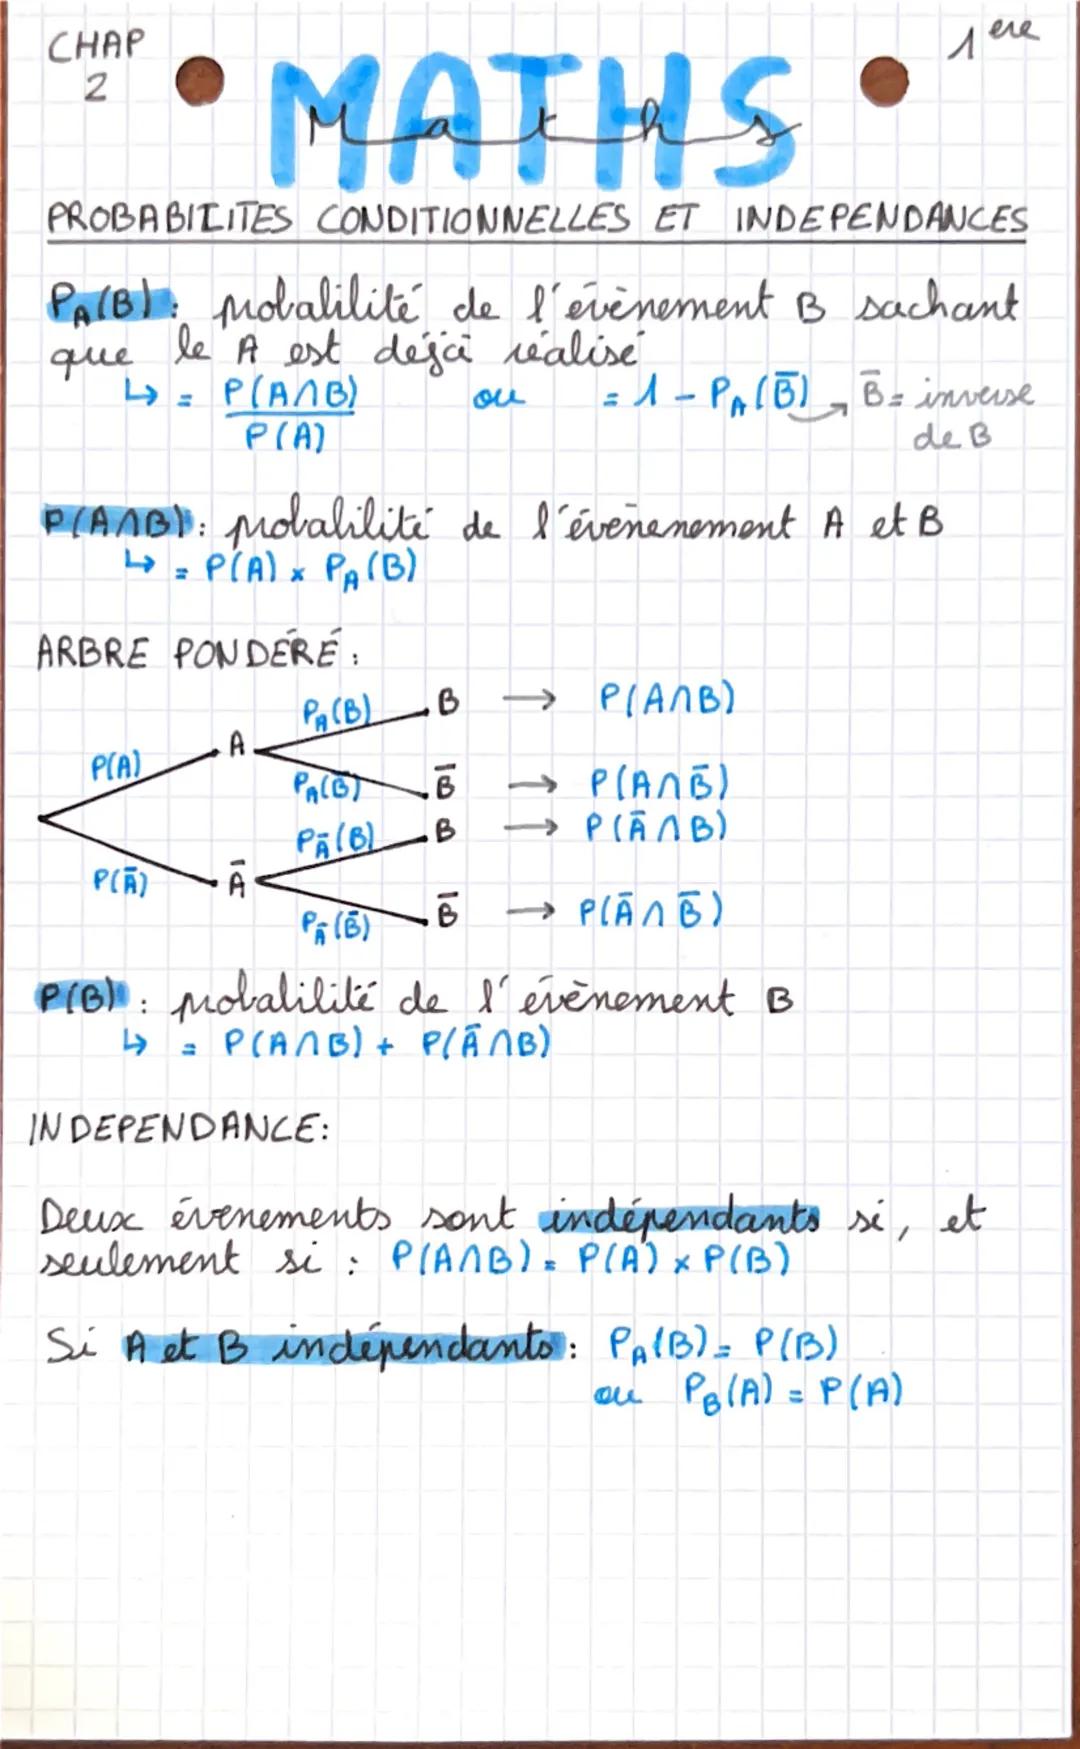 CHAP
2
1ère
MATHS
Maths
PROBABILITES CONDITIONNELLES ET INDEPENDANCES
P_A(B) : probabilité de l'évènement B sachant
que le A est déjà réalisé
↳ = P(A∩B)/P(A) ou = 1 - P_A(B̄) → B̄ = inverse
de B
P(A∩B) : probabilité de l'évènenement A et B
↳ = P(A) × P_A(B)
ARBRE PONDÉRÉ :
P_A(B) B → P(A∩B)
P(A) A
P_A(B̄) B̄ → P(A∩B̄)
P_Ā(B) B → P(Ā∩B)
P(Ā) Ā
P_Ā(B̄) B̄ → P(Ā∩B̄)
P(B) : probabilité de l'évènement B
↳ = P(A∩B) + P(Ā∩B)
INDEPENDANCE:
Deux évenements sont indépendants si, et
seulement si : P(A∩B) = P(A) × P(B)
Si A et B indépendants : P_A(B) = P(B)
ou P_B(A) = P(A)